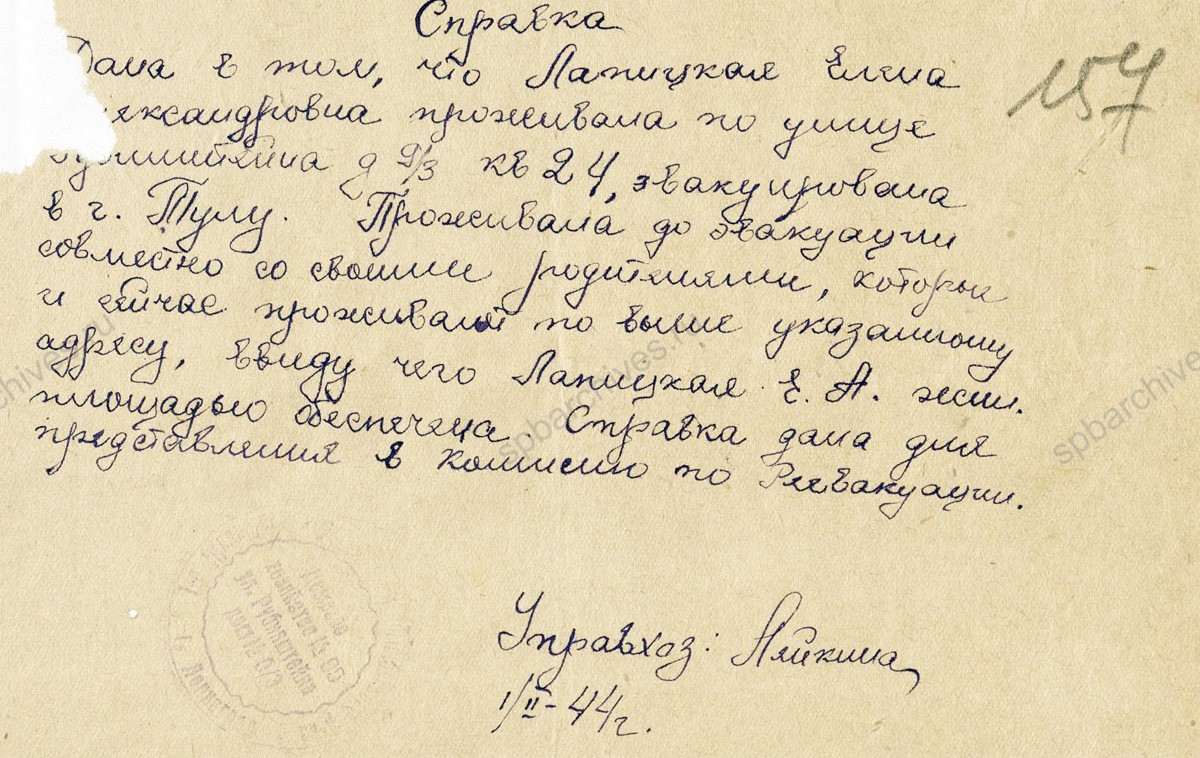 Справка
157
Дана в том, что Лапицкая Елена
лександровна проживала по улице
Рубинштейна д 9/3 кв 24, эвакуирована
в г. Тулу. Проживала до эвакуации
совместно со своими родителями, которые
и сейчас проживают по выше указанному
адресу, ввиду чего Лапицкая Е. А. жил.
площадью обеспечена. Справка дана для
представления в комиссию по Реэвакуации.
Управхоз: Ляйкина
1/II-44г.
ул. Рубинштейна
spbarchives.ru